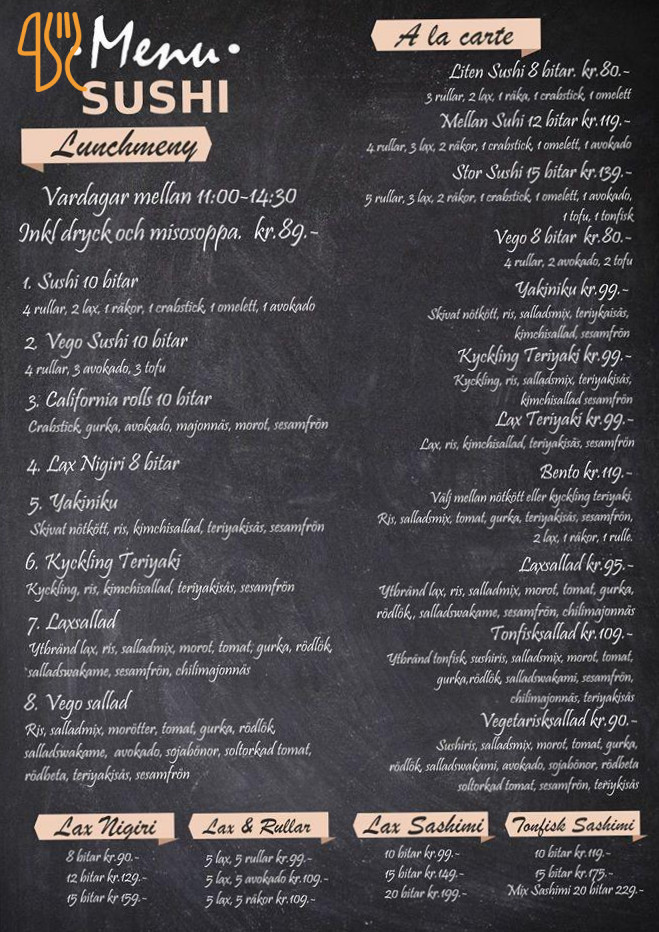 Menu
SUSHI
Lunchmeny
Vardagar mellan 11:00-14:30
Inkl dryck och misosoppa. kr.89.-
1. Sushi 10 bitar
4 rullar, 2 lax, 1 räkor, 1 crabstick, 1 omelett, 1 avokado
2. Vego Sushi 10 bitar
4 rullar, 3 avokado, 3 tofu
3. California rolls 10 bitar
Crabstick, gurka, avokado, majonnäs, morot, sesamfrön
4. Lax Nigiri 8 bitar
5. Yakiniku
Skivat nötkött, ris, kimchisallad, teriyakisås, sesamfrön
6. Kyckling Teriyaki
Kyckling, ris, kimchisallad, teriyakisås, sesamfrön
7. Laxsallad
Ytbränd lax, ris, salladmix, morot, tomat, gurka, rödlök,
salladswakame, sesamfrön, chilimajonnäs
8. Vego sallad
Ris, salladmix, morötter, tomat, gurka, rödlök,
salladswakame, avokado, sojabönor, soltorkad tomat,
rödbeta, teriyakisås, sesamfrön
A la carte
Liten Sushi 8 bitar. kr.80.-
3 rullar, 2 lax, 1 räka, 1 crabstick, 1 omelett
Mellan Suhi 12 bitar kr.119.-
4 rullar, 3 lax, 2 räkor, 1 crabstick, 1 omelett, 1 avokado
Stor Sushi 15 bitar kr.139.-
5 rullar, 3 lax, 2 räkor, 1 crabstick, 1 omelett, 1 avokado,
1 tofu, 1 tonfisk
Vego 8 bitar kr.80.-
4 rullar, 2 avokado, 2 tofu
Yakiniku kr.99.-
Skivat nötkött, ris, salladsmix, teriykaisås,
kimchisallad, sesamfrön
Kyckling Teriyaki kr.99.-
Kyckling, ris, salladsmix, teriyakisås,
kimchisallad sesamfrön
Lax Teriyaki kr.99.-
Lax, ris, kimchisallad, teriyakisås, sesamfrön
Bento kr.119.-
Välj mellan nötkött eller kyckling teriyaki.
Ris, salladsmix, tomat, gurka, teriyakisås, sesamfrön,
2 lax, 1 räkor, 1 rulle.
Laxsallad kr.95.-
Ytbränd lax, ris, salladsmix, morot, tomat, gurka,
rödlök,, salladswakame, sesamfrön, chilimajonnäs
Tonfisksallad kr.109.-
Ytbränd tonfisk, sushiris, salladsmix, morot, tomat,
gurka,rödlök, salladswakami, sesamfrön,
chilimajonnäs, teriyakisås
Vegetarisksallad kr.90.-
Sushiris, salladsmix, morot, tomat, gurka,
rödlök, salladswakami, avokado, sojabönor, rödbeta
soltorkad tomat, sesamfrön, teriyakisås
Lax Nigiri
8 bitar kr.90.-
12 bitar kr.129.-
15 bitar kr 159.-
Lax & Rullar
5 lax, 5 rullar kr.99.-
5 lax, 5 avokado kr.109.-
5 lax, 5 räkor kr.109.-
Lax Sashimi
10 bitar kr.99.-
15 bitar kr.149.-
20 bitar kr.199.-
Tonfisk Sashimi
10 bitar kr.119.-
15 bitar kr.175.-
Mix Sashimi 20 bitar 229.-